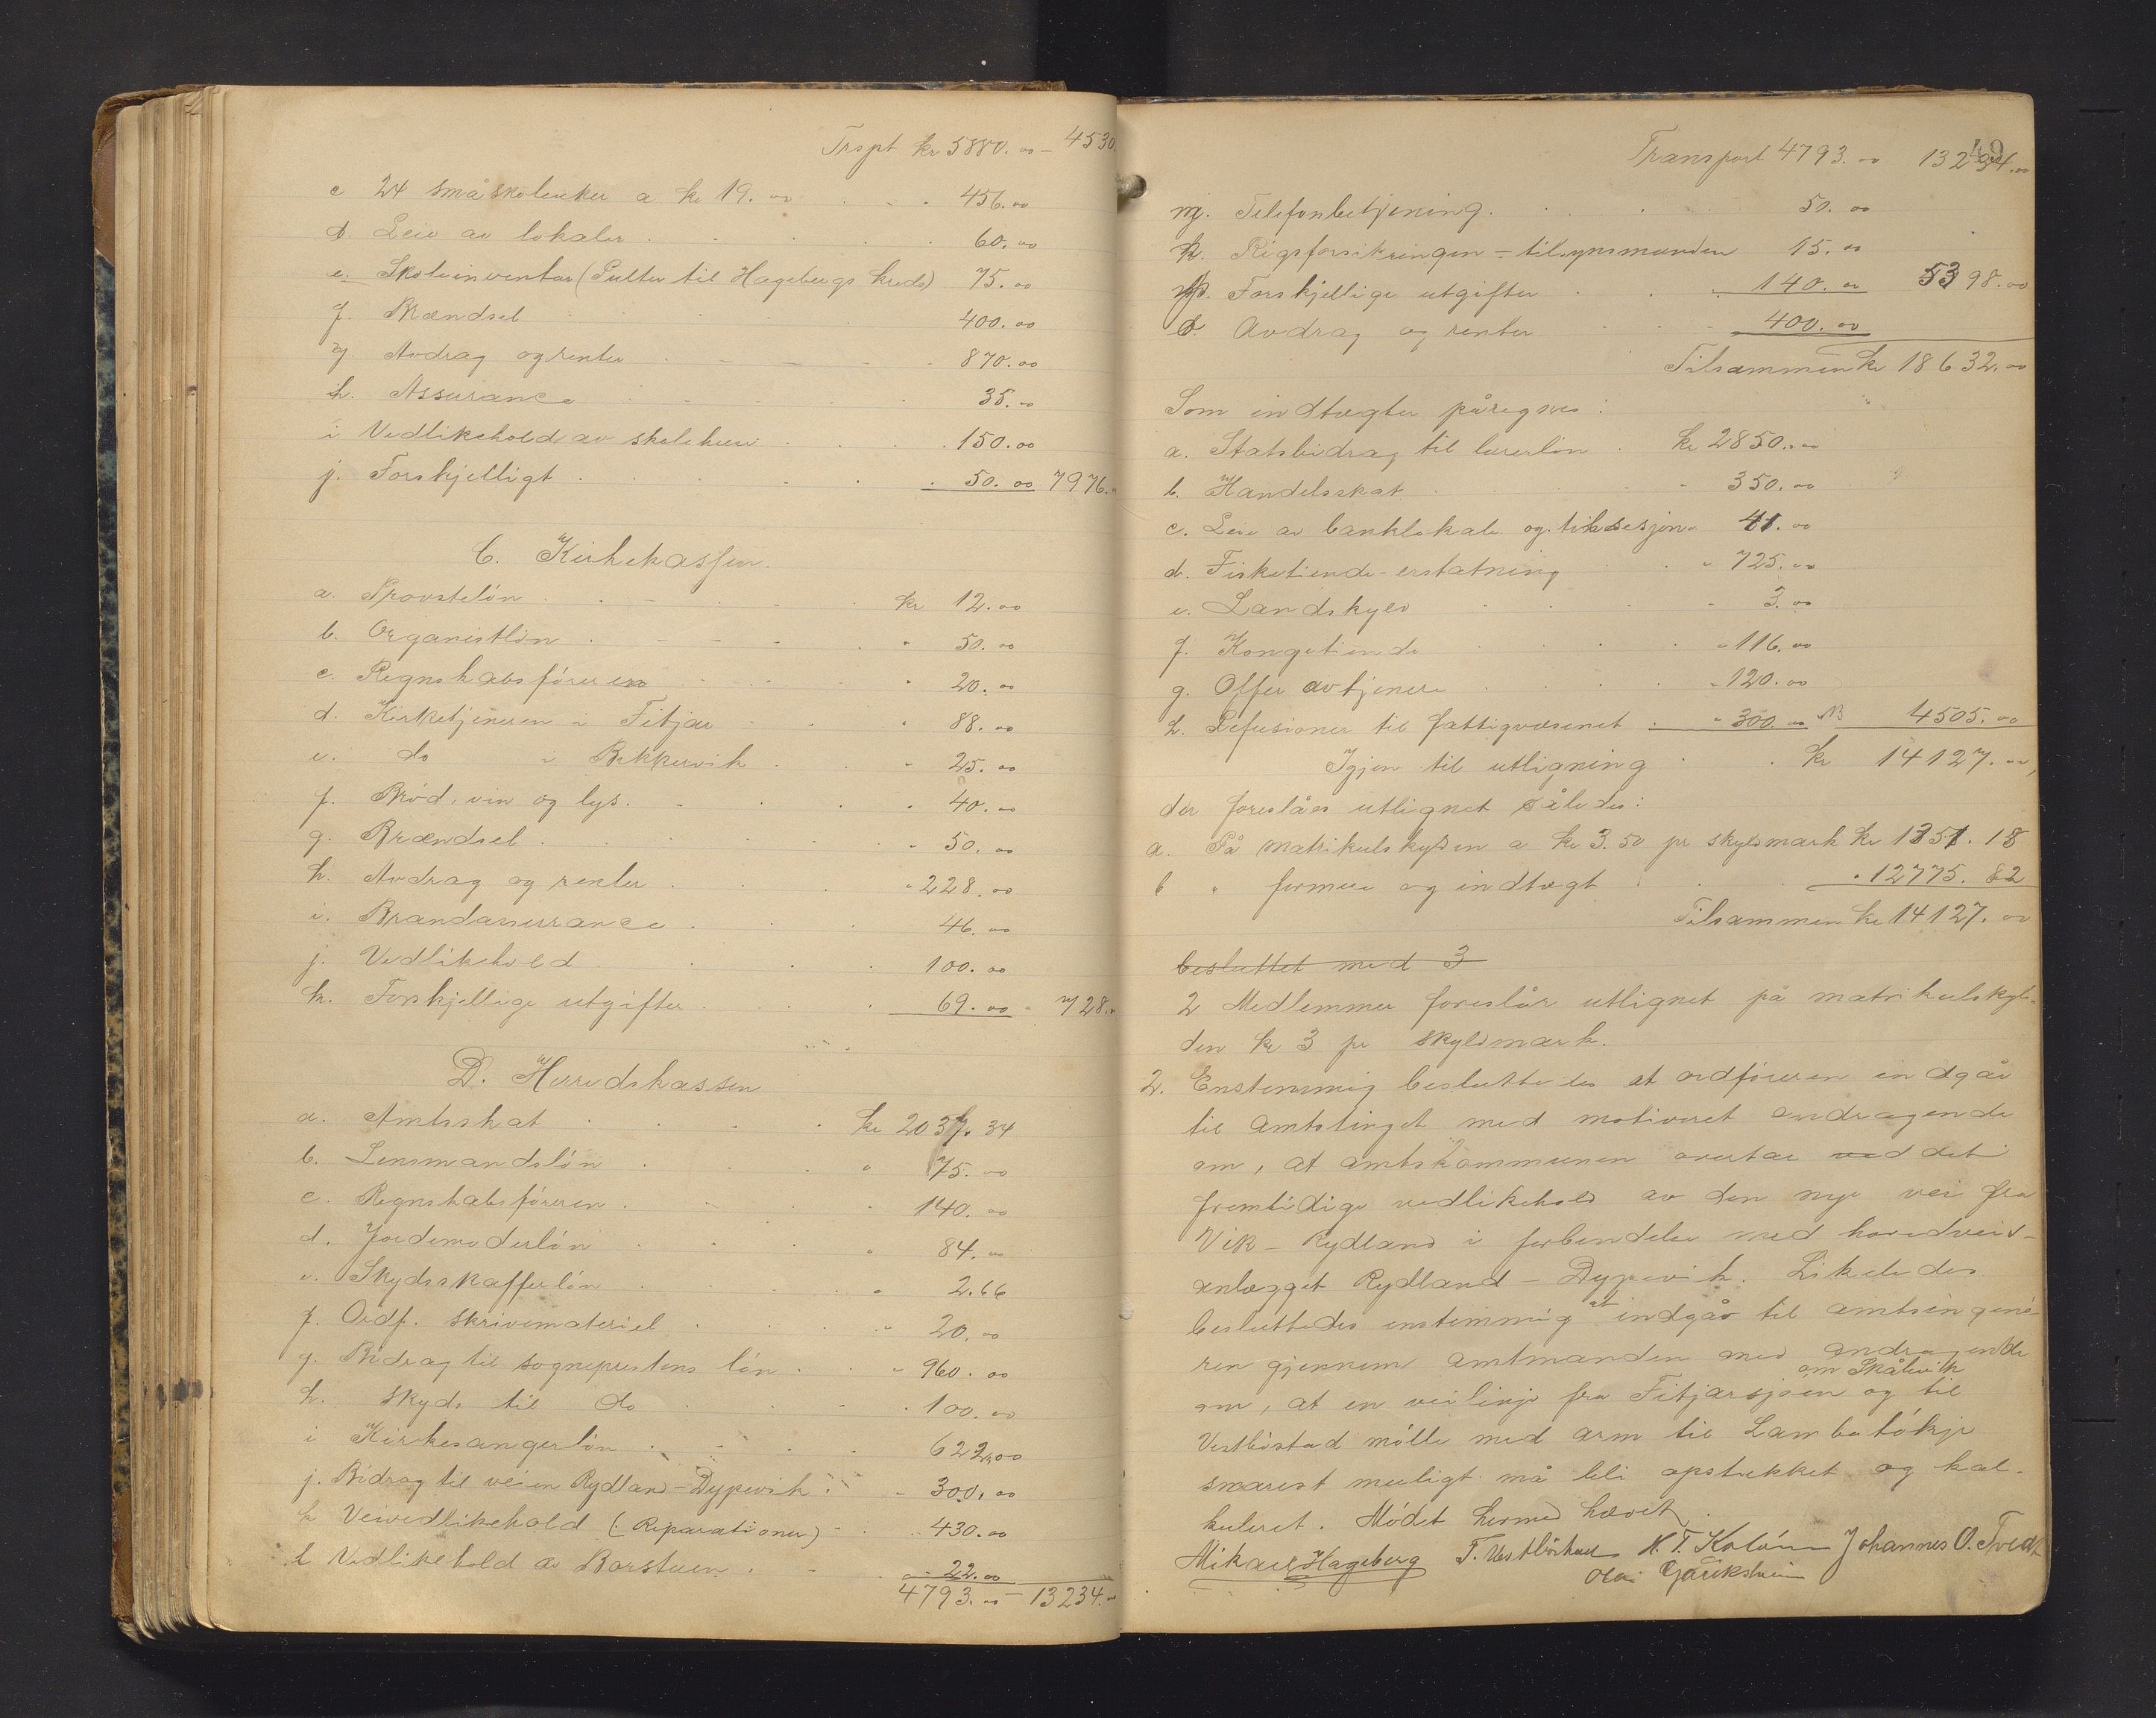 Trspt kr 5880.00 - 4530.
c 24 småskoleuker a kr 19.00 456.00
d. Leie av lokaler 60.00
e. Skoleinventar (Pulter til Hagebergs kreds) 75.00
f. Brændsel 400.00
g. Avdrag og renter 870.00
h. Assurance 35.00
i Vedlikehold av skolehuse 150.00
j. Forskjelligt 50.00 7976.
C. Kirkekassen.
a. Provsteløn kr 12.00
b. Organistløn " 50.00
c. Regnskabsføreren " 20.00
d. Kirketjeneren i Fitjar " 88.00
e. do i Bekkervik " 25.00
f. Brød, vin og lys. " 40.00
g. Brændsel " 50.00
h. Avdrag og renter " 228.00
i. Brandassurance 46.00
j. Vedlikehold 100.00
k. Forskjellige utgifter 69.00 - 728.
D. Herredskassen
a. Amtsskat kr 2037.34
b. Lensmandsløn " 75.00
c. Regnskabsføreren " 140.00
d. Jordemoderløn " 84.00
e. Skydsskafferløn " 2.66
f. Ordf. skrivemateriel " 20.00
g. Bidrag til sogneprestens løn " 960.00
h. skyds til do " 100.00
i Kirkesangerløn 622.00
j. Bidrag til veien Rydland - Dypevik " 300.00
k Veivedlikehold (: Reparationer) " 430.00
l Vedlikehold av Borstuen " 22.00
4793.00 - 13234.00
49
Transport 4793.00 13234.00
m. Telefonbetjening 50.00
n. Rigsforsikringen - tilsynsmanden 15.00
p. Forskjellige utgifter 140.00 5398.00
o. Avdrag og renter 400.00
Tilsammen kr 18632.00
Som indtægter påregnes:
a. Statsbidrag til lærerløn kr 2850.00
b. Handelsskat " 350.00
c. Leie av banklokale og til sesjon " 41.00
d. Fisketiende-erstatning " 725.00
e. Landskyld " 3.00
f. Kongetiende " 116.00
g. Offer av tjenere " 120.00
h. Refusioner til fattigvæsenet " 300.00 4505.00
Igjen til utligning kr 14127.00,
der foreslåes utlignet således:
a. På matrikulskylden a kr 3.50 pr skyldmark kr 1351.18
b " formue og indtægt " 12775.82
Tilsammen kr 14127.00
besluttet med 3
2 Medlemmer foreslår utlignet på matrikulskyl-
den kr 3 pr skyldmark.
2. Enstemmig besluttedes at ordføreren indgår
til amtstinget med motiveret andragende
om, at amtskommunen overtar ved det
fremtidige vedlikehold av den nye vei fra
Vik - Rydland i forbindelse med hovedveis-
anlægget Rydland - Dypevik. Likeledes
besluttedes enstemmig at indgår til amtsingeniø-
ren gjennem amtmanden med andragende
om, at en veilinje fra Fitjarsjøen og til om Skålevik
Vestbøstad mølle med arm til Lambatøkje
snarest muligt må bli opstukket og kal-
kuleret. Mødet hermed hævet.
Mikael Hageberg T. Vestbøstad H. T. Koløen Johannes O. Tveit
Ola Gjæriksheim